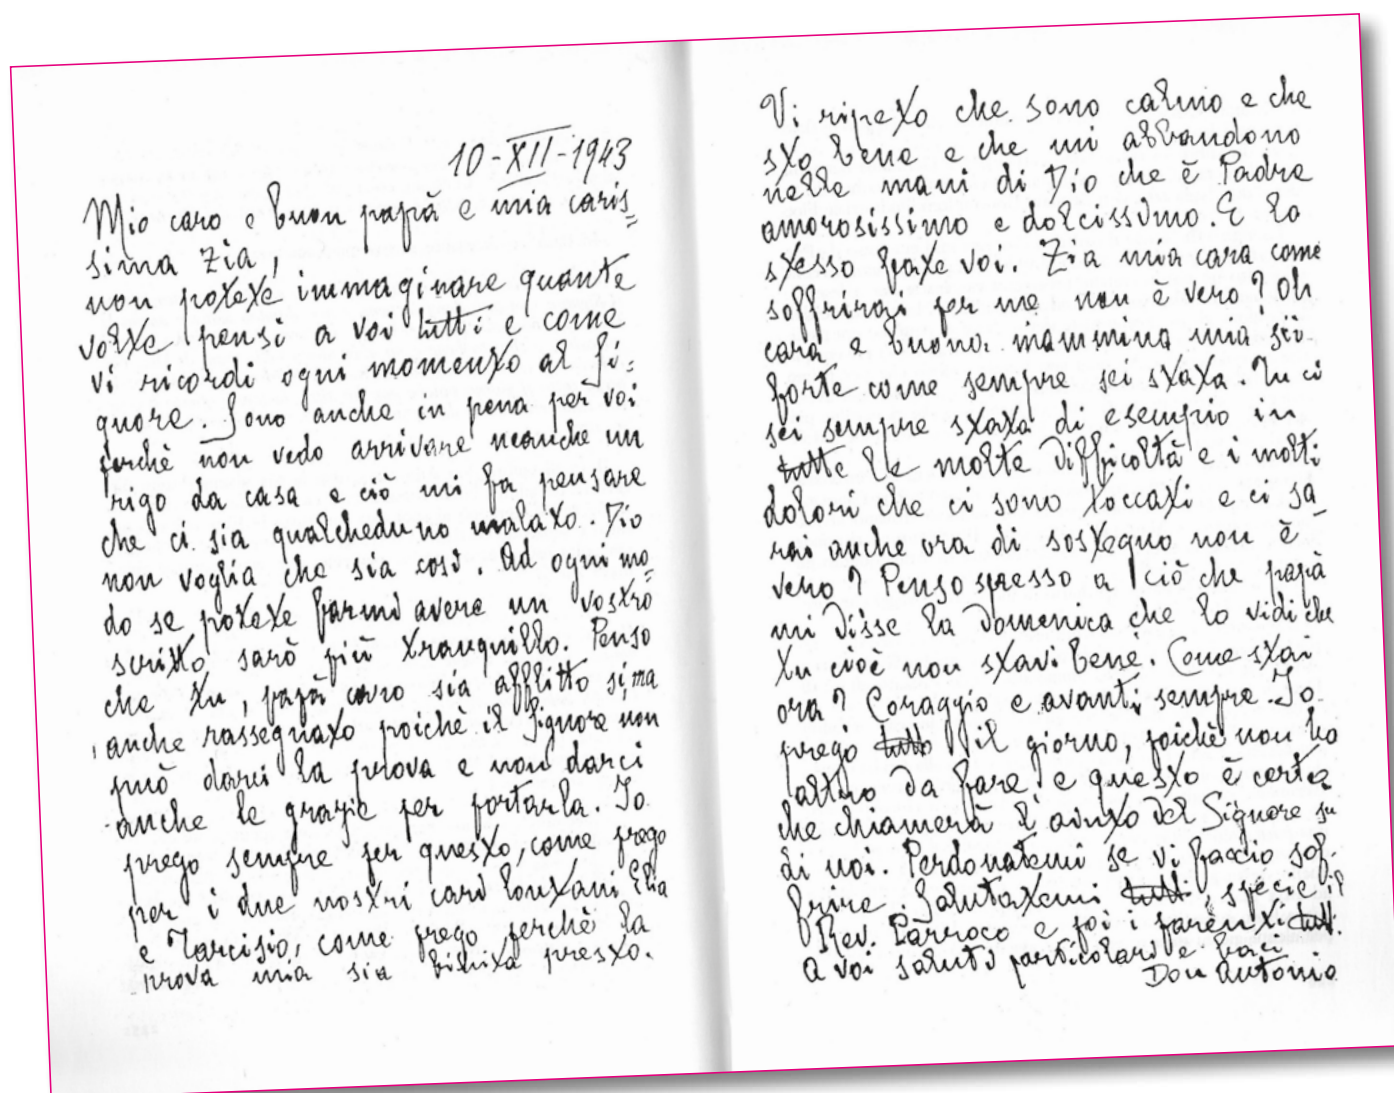 10-XII-1943
Mio caro e buon papà e mia caris=
sima zia,
non potete immaginare quante
volte pensi a voi tutti e come
vi ricordi ogni momento al Si=
gnore. Sono anche in pena per voi
perchè non vedo arrivare neanche un
rigo da casa e ciò mi fa pensare
che ci sia qualcheduno malato. Dio
non voglia che sia così. Ad ogni mo=
do se potete farmi avere un vostro
scritto sarò più tranquillo. Penso
che tu, papà caro sia afflitto sì, ma
anche rassegnato poichè il Signore non
può darci la prova e non darci
anche le grazie per portarla. Io
prego sempre per questo, come prego
per i due nostri cari lontani Elia
e Tarcisio, come prego perchè la
prova mia sia finita presto.
Vi ripeto che sono calmo e che
sto bene e che mi abbandono
nelle mani di Dio che è Padre
amorosissimo e dolcissimo. E lo
stesso fate voi. Zia mia cara come
soffrirai per me non è vero? Oh
cara e buona mammina mia sii
forte come sempre sei stata. Tu ci
sei sempre stata di esempio in
tutte le molte difficoltà e i molti
dolori che ci sono toccati e ci sa_
rai anche ora di sostegno non è
vero? Penso spesso a ciò che papà
mi disse la Domenica che lo vidi che
tu cioè non stavi bene. Come stai
ora? Coraggio e avanti sempre. Io
prego tutto il giorno, poichè non ho
altro da fare e questo è certo
che chiamerà l'aiuto del Signore su
di noi. Perdonatemi se vi faccio sof-
frire. Salutatemi tutti, specie il
Rev. Parroco e poi i parenti tutti.
A voi saluti particolari e baci
Don Antonio